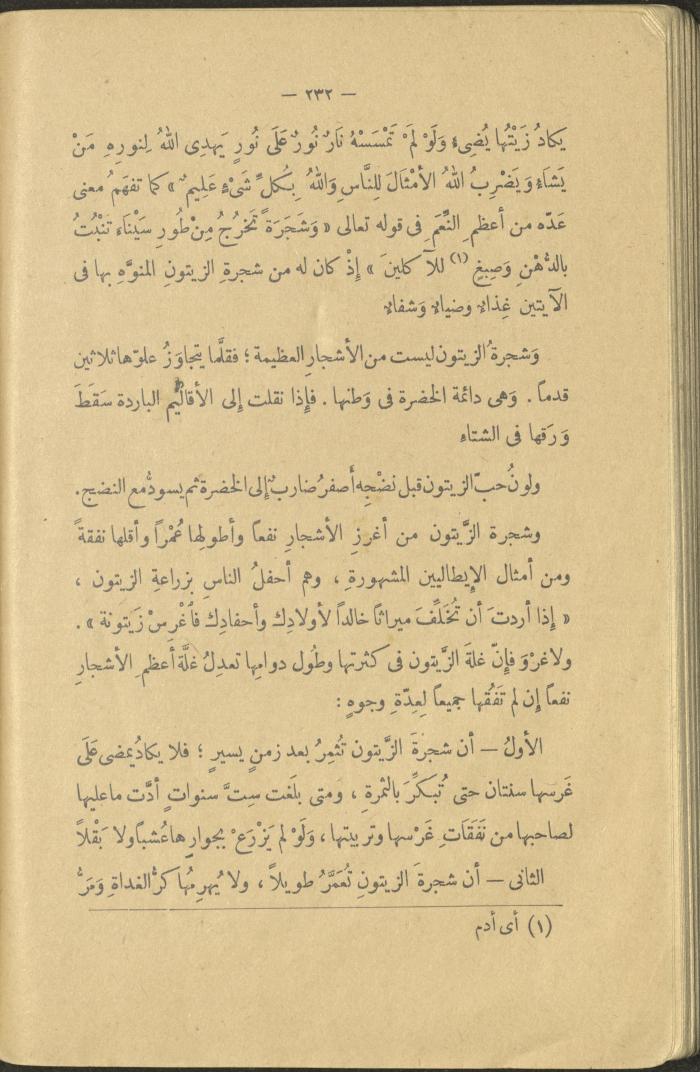 — ٢٣٢ —
يكادُ زَيْتُهَا يُضِىءُ وَلَوْ لَمْ تَمْسَسْهُ نَارٌ نُورٌ عَلَى نُورٍ يَهدِى اللهُ لِنورِهِ مَنْ
يَشَاءُ وَيَضْرِبُ اللهُ الأمْثَالَ لِلنَّاسِ وَاللهُ بِكُلِّ شَىْءٍ عَلِيمٌ » كما تفهَمُ معنى
عَدّه من أعظمِ النِّعَمِ فى قوله تعالى « وَشَجَرَةً تَخرُجُ مِنْ طُورِ سَيْنَاءَ تَنْبُتُ
بالدُّهْنِ وَصِبغٍ (١) للآكلينَ » إذْ كان له من شجرةِ الزيتونِ المنوَّهِ بها فى
الآيتين غِذاء وضياء وَشفاء
وَشجرةُ الزيتون ليست من الأشجارِ العظيمة ؛ فقلَّما يتجاوَزُ علوّها ثلاثين
قدماً . وَهى دائمة الخضرة فى وَطنها . فإذا نقلت إلى الأقاليم الباردة سَقَطَ
وَرَقها فى الشتاءِ
ولونُ حبّ الزيتون قبل نضْجِه أصفرُ ضاربٌ إلى الخضرة ثم يسودُّ مع النضج .
وشجرة الزَّيتون من أغزرِ الأشجارِ نفعاً وأطولِها عُمْراً وأقلها نفقةً
ومن أمثال الإيطاليين المشهورةِ ، وهم أحفلُ الناسِ بزراعةِ الزيتون ،
« إذا أردتَ أن تُخَلِّفَ ميراثاً خالداً لأولادِك وأحفادِك فاُغْرِسْ زَيتونة » .
ولا غرْوَ فإنّ غلةَ الزَّيتون فى كثرتها وطُول دوامِها تعدِلُ غلَّةَ أعظمِ الأشجارِ
نفعاً إن لم تَفُقها جميعاً لِعِدّةِ وجوهٍ :
الأولُ — أن شجرةَ الزَّيتون تُثمِرُ بعد زمنٍ يسيرٍ ؛ فلا يكادُ يمضى عَلَى
غَرسها سنتان حتى تُبَكِّرَ بالثمرةِ ، ومتى بلَغت سِتَّ سنواتٍ أدَّت ما عليها
لصاحبها من نَفَقَاتِ غَرْسها وتربيتها ، وَلَوْ لم يَزْرَعْ بجوارِها عُشباً ولا بَقْلاً
الثانى — أن شجرةَ الزيتونِ تُعَمَّرُ طويلاً ، ولا يُهرِمُها كرُّ الغداةِ وَمَرُّ
(١) أى أدم